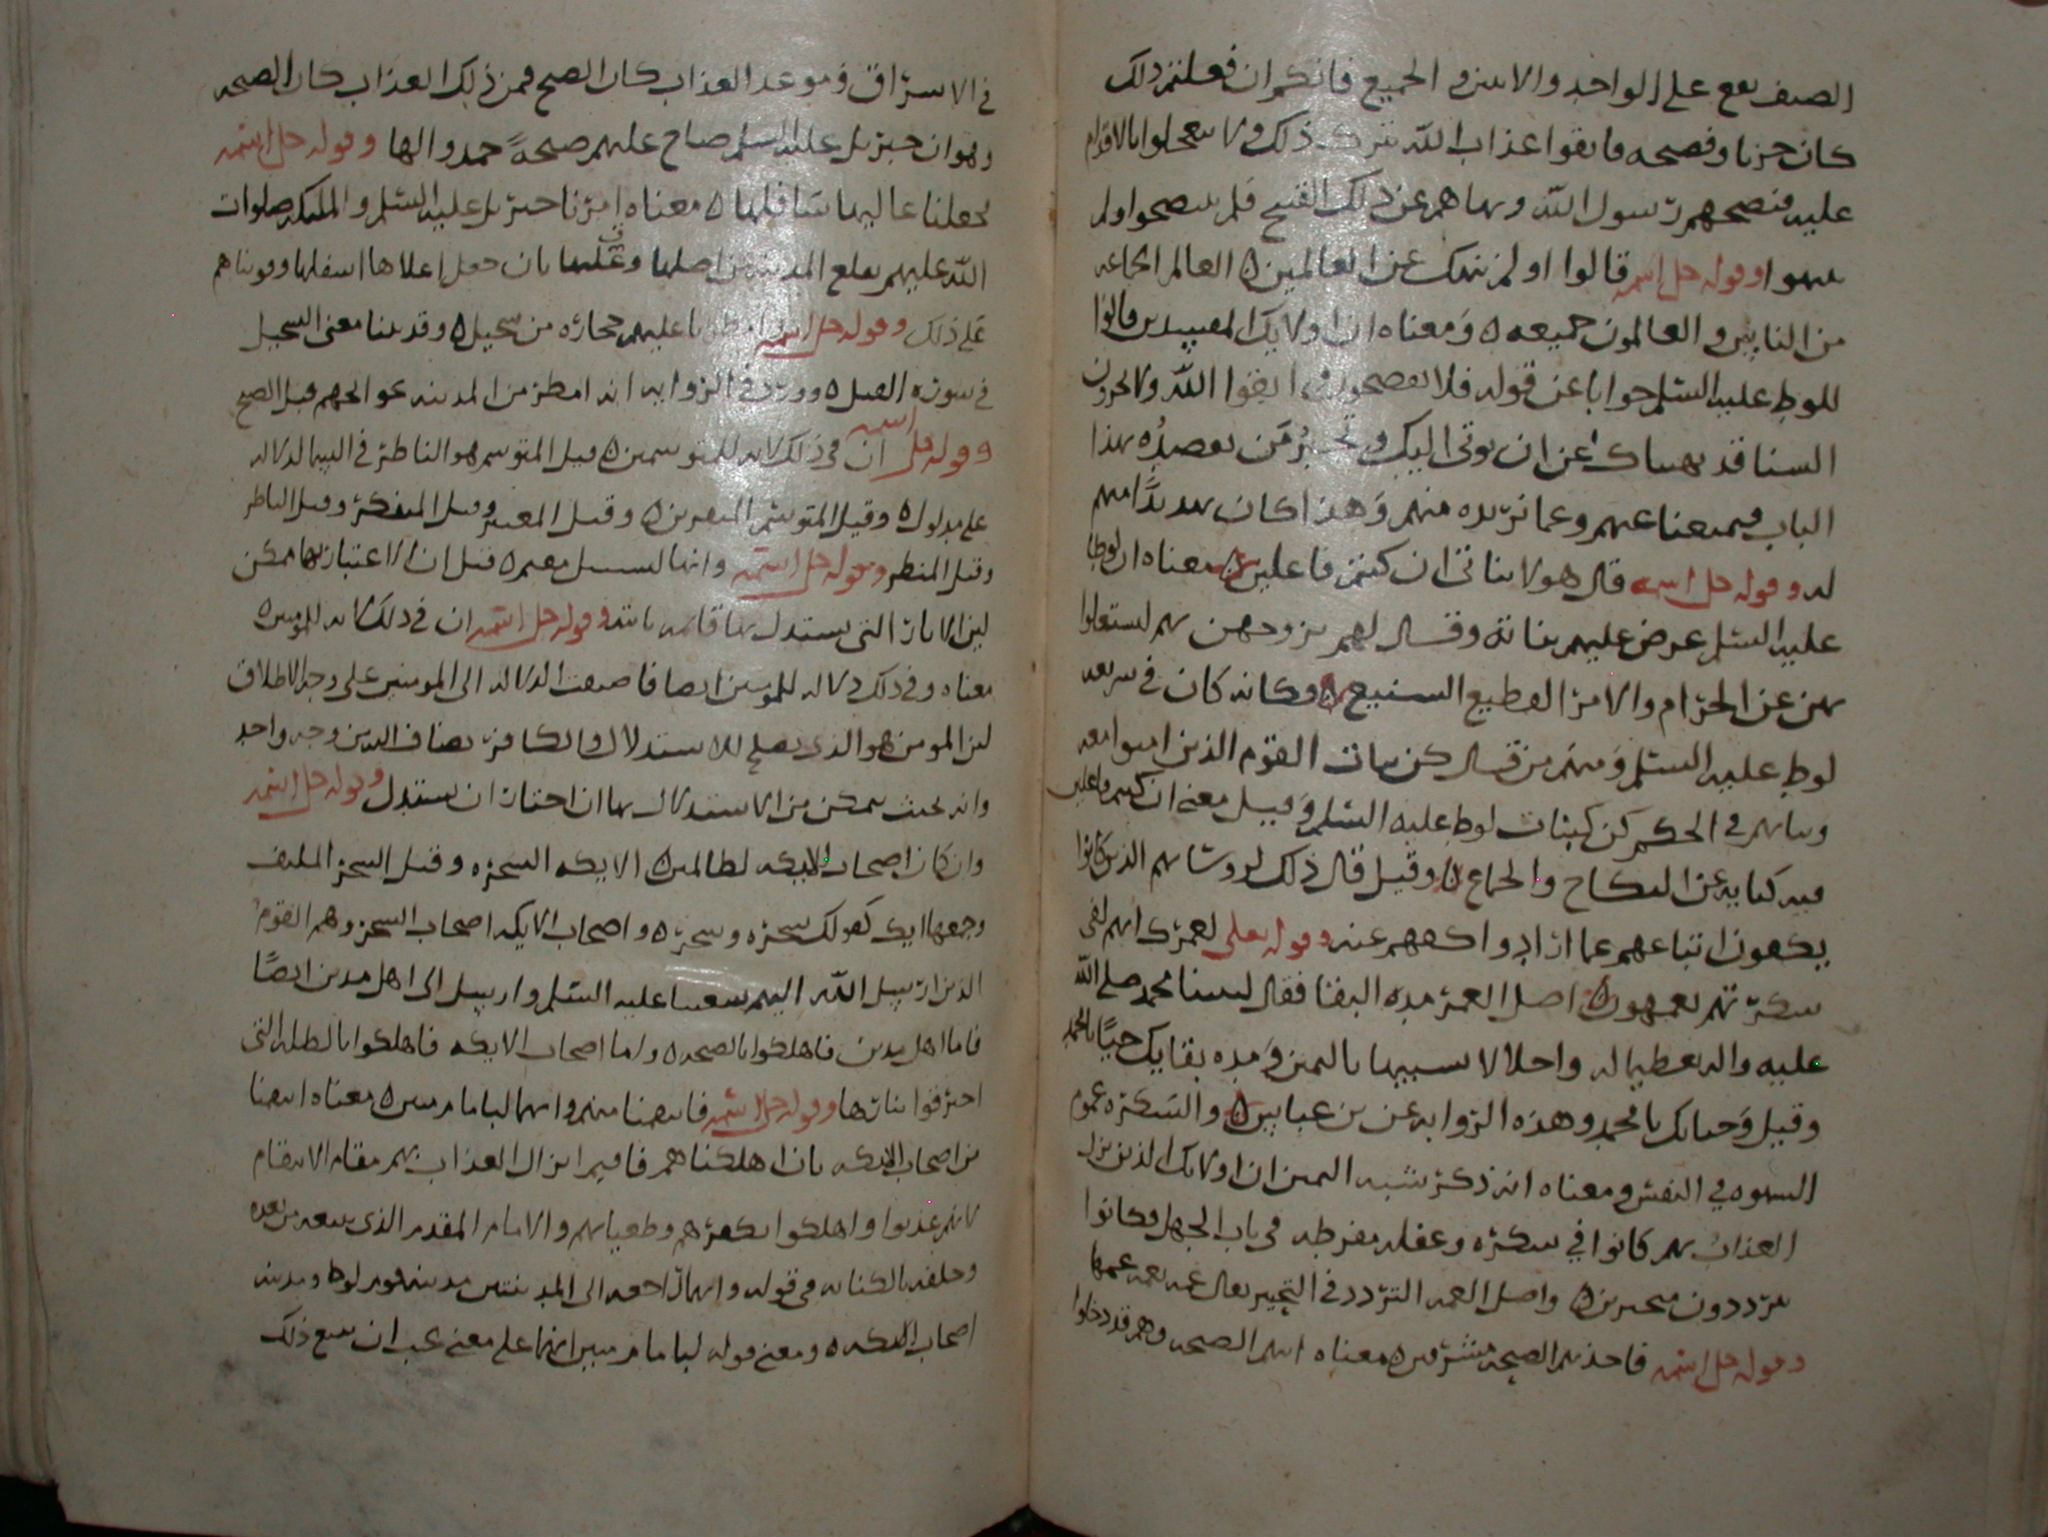 الضيف يقع على الواحد والاثنين والجميع فانكم ان فعلتم ذلك
كان حزيا وفضيحه فاتقوا عذاب الله بترك ذلك ولا تعجلوا بالاقدام
عليه فنصحهم رسول الله ونهاهم عن ذلك القبيح فلم ينتصحوا ولم
ينتهوا وقوله جل اسمه قالوا اولم ننهك عن العالمين العالم الجماعه
من الناس والعالمون جميعه ومعناه ان اولايك المفسدين قالوا
للوط عليه السلم جوابا عن قوله فلا تفضحون واتقوا الله ولا تخزون
السنا قد نهيناك عن ان يوتى اليك وتجير من يقصده بهذا
الباب فيمنعنا عنهم وعما نريده منهم وهذا كان تهديدا منهم
له وقوله جل اسمه قال هولا بناتي ان كنتم فاعلين معناه ان لوطا
عليه السلم عرض عليهم بناته وقال لهم تزوجهن بهم ليستغنوا
بهن عن الحرام والامر الفظيع الشنيع وكانه كان في شريعه
لوط عليه السلم ومنهم من قال كن بنات القوم الذين امنوا معه
وبناتهم في الحكم كن كبنات لوط عليه السلم وقيل معنى ان كنتم فاعلين
فيه كنايه عن النكاح والجماع وقيل قال ذلك لروسائهم الذين كانوا
يكفون اتباعهم عما ارادوا كفهم عنه وقوله تعلى لعمرك انهم لفي
سكرتهم يعمهون اصل العمر مده البقا فقال لنبينا محمد صلى الله
عليه واله تعظيما له واجلالا لسببها باليمن ومده بقايك حيا يا محمد
وقيل وحياتك يا محمد وهذه الروايه عن بن عباس والسكره غموم
السهوه في النفس ومعناه انه ذكر شبه اليمين ان اولايك الذين نزل
العذاب بهم كانوا في سكره وغفله مفرطه في باب الجهل وكانوا
يترددون متحيرين واصل العمه التردد في التحير يقال عمه يعمه عمها
وقوله جل اسمه فاخذتهم الصيحه مشرقين معناه اتتهم الصيحه وهم قد دخلوا
في الاشراق وموعد العذاب كان الصبح فمن ذلك العذاب كان الصيحه
وهو ان جبريل عليه السلم صاح عليهم صيحة خمدوا لها وقوله جل اسمه
فجعلنا عاليها سافلها معناه امرنا جبريل عليه السلم والمليكه صلوات
الله عليهم بقلع المدينه من اصلها وقلبها بان جعل اعلاها اسفلها وقويناهم
على ذلك وقوله جل اسمه امطرنا عليهم حجاره من سجيل وقد بينا معنى السجيل
في سوره الفيل وورد في الروايه انه امطر من المدينه نحو الجهم قبل الصبح
وقوله جل اسمه ان في ذلك لايه للمتوسمين قيل المتوسم هو الناظر في السمه الداله
على مدلول وقيل المتوسم المتفرس وقيل المعتبر وقيل المتفكر وقيل الناظر
وقيل المنظر وقوله جل اسمه وانها لبسبيل مقيم قيل ان الاعتبار بها ممكن
لين الايات التي يستدل بها قايمه ثابته وقوله جل اسمه ان في ذلك لايه للمومنين
معناه وفي ذلك دلاله للمومنين ايضا فاضيفت الدلاله الى المومنين على وجه الاطلاق
لين المومن هو الذي يصلح للاستدلال والكافر يضاف اليه من وجه واحد
وانه بحيث يمكن من الاستدلال بها ان اختار ان يستدل وقوله جل اسمه
وان كان اصحاب الايكه لظالمين الايكه الشجره وقيل الشجر الملتف
وجمعها ايك كقولك شجره وشجر واصحاب الايكه اصحاب الشجر وهم القوم
الذين ارسل الله اليهم شعيبا عليه السلم وارسل الى اهل مدين ايضا
فاما اهل مدين فاهلكوا بالصيحه واما اصحاب الايكه فاهلكوا بالظله التي
احترقوا بنارها وقوله جل اسمه فانتقمنا منهم وانهما لبامام مبين معناه انتقمنا
من اصحاب الايكه بان اهلكناهم فاقيم انزال العذاب بهم مقام الانتقام
لانهم عذبوا واهلكوا بكفرهم وطغيانهم والامام المقدم الذي يتبعه من بعده
وخلفه والكنايه في قوله وانهما راجعه الى المدينتين مدينه قوم لوط ومدينه
اصحاب الايكه ومعنى قوله لبامام مبين انهما على معنى يجب ان يتبع ذلك